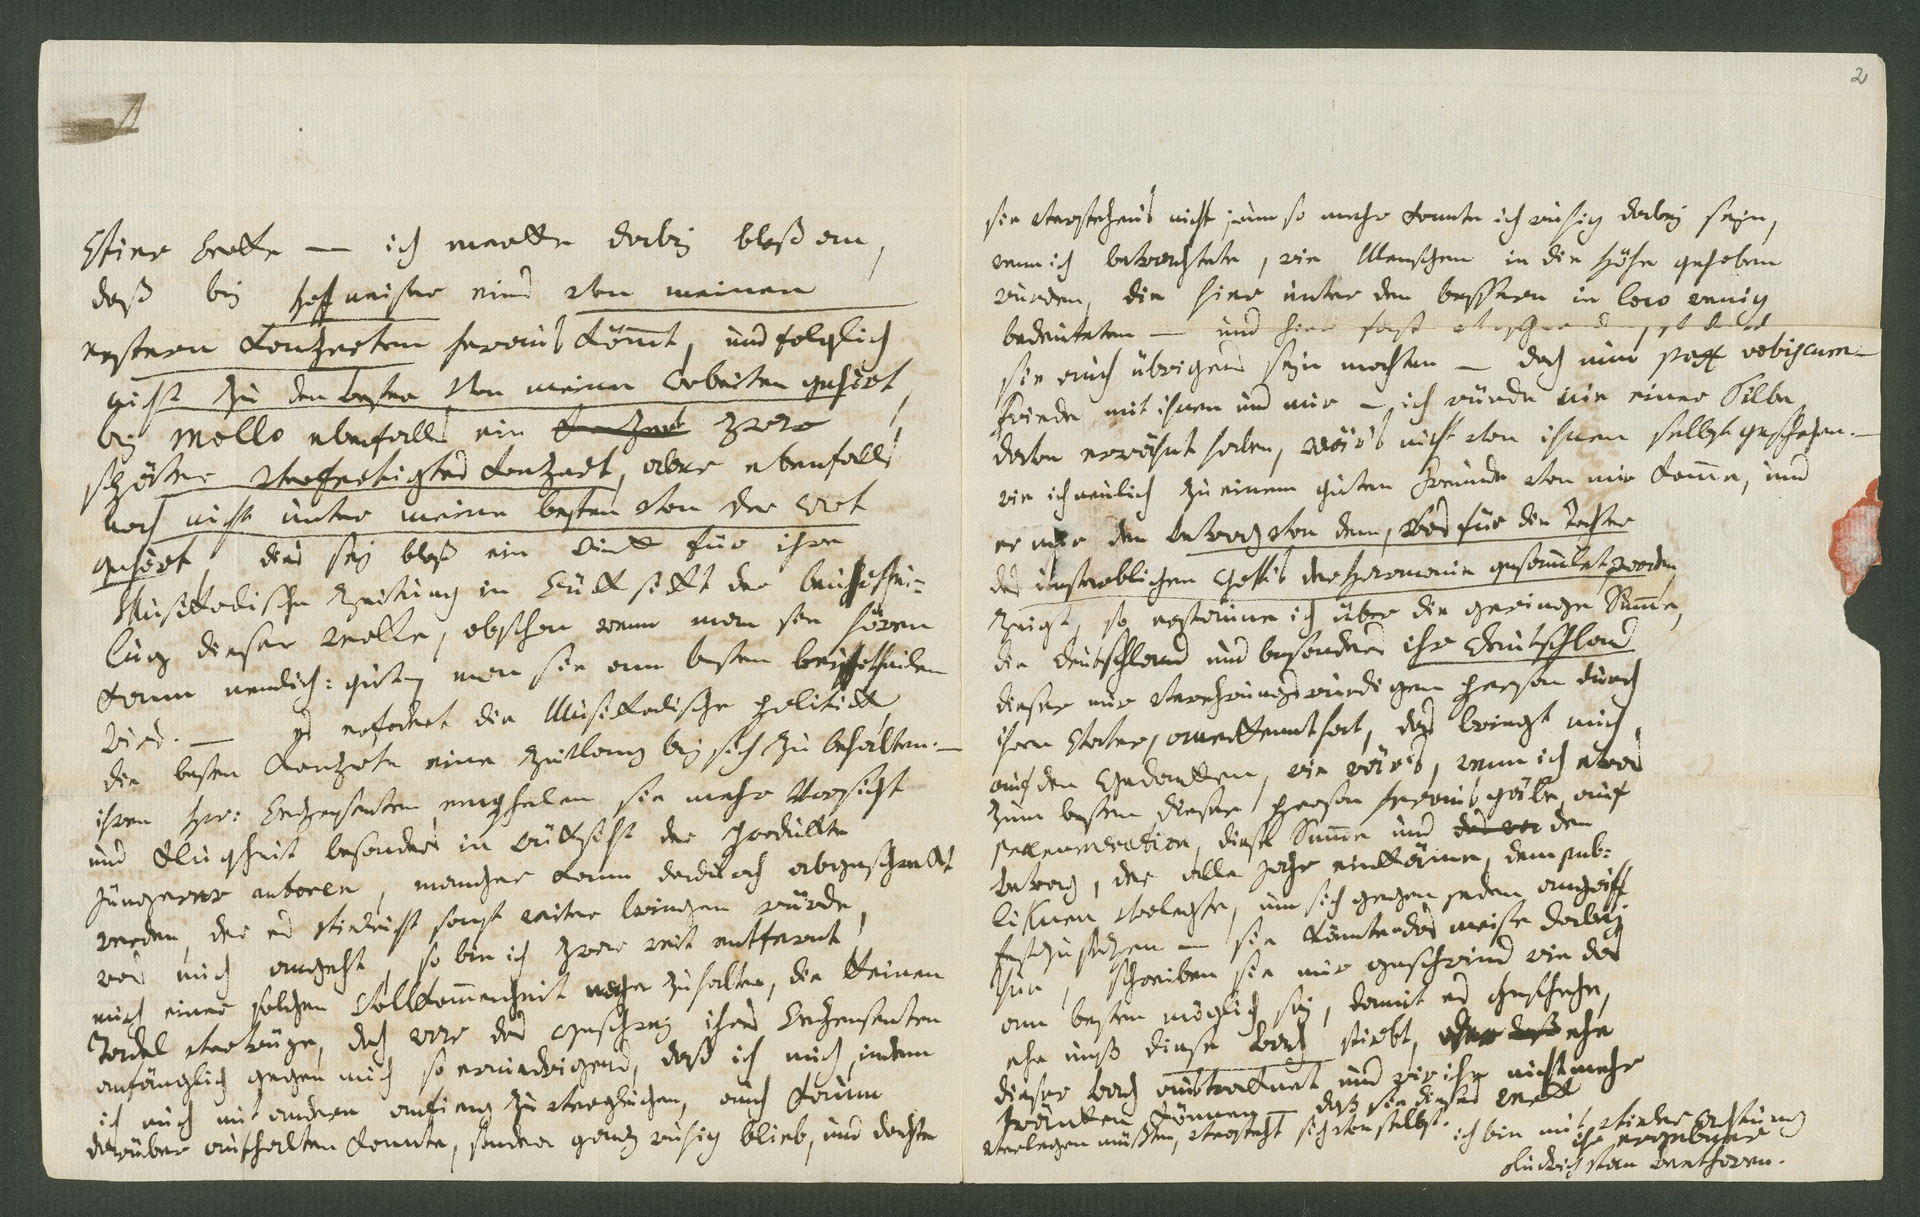 dieser Werke — ich merke dabey bloß an,
daß bey Hofmeister eins von meinen
ersten Konzerten heraus kömmt, und folglich
nicht zu den besten von meinen Arbeiten gehört,
bey Mollo ebenfalls ein Konzert zwar
später verfertigtes Konzert, aber ebenfalls
noch nicht unter meine besten von der Art
gehört, dies sey bloß ein Wink für ihre
Musikalische Zeitung in Rücksicht der beurthei=
lung dieser Werke, obschon wenn man sie hören
kann nemlich: gut, man sie am besten beurtheilen
wird. — es erfodert die Musikalische Politick
die besten Konzerte eine Zeitlang bey sich zu behalten. —
ihren Hr: Rezensenten empfehlen sie mehr Vorsicht
und Klugheit besonders in Rücksicht der Produkte
jüngerer autoren, mancher kann dadurch abgeschreckt
werden, der es vieleicht sonst weiter bringen würde,
was mich angeht, so bin ich zwar weit entfernt
mich einer solchen Vollkommenheit nahe zu halten, die keinen
Tadel vertrüge, doch war das Geschrey ihres Rezensenten
anfänglich gegen mich so erniedrigend, daß ich mich, indem
ich mich mit andern anfieng zu vergleichen, auch kaum
darüber aufhalten konnte, sondern ganz ruhig blieb, und dachte
2
sie verstehens nicht; um so mehr konnte ich ruhig dabey seyn,
wenn ich betrachtete, wie Menschen in die Höhe gehoben
wurden, die hier unter den bessern in loco wenig
bedeuteten — und hier fast
sie auch übrigens seyn mochten — doch nun pax vobiscum —
Friede mit ihnen und mir — ich würde nie eine Silbe
davon erwähnt haben, wär's nicht von ihnen selbst geschehen. —
wie ich neulich zu einem guten Freunde von mir komme, und
er mir den betrag von dem, was für die Tochter
des unsterblichen Gotts der Harmonie gesammelt worden,
zeigt, so erstaune ich über die geringe Summe,
die Deutschland und besonders ihr Deutschland
dieser mir verehrungswürdigen person durch
ihren Vater, anerkennt hat, das bringt mich
auf den Gedanken, wie wär's, wenn ich etwas
zum besten dieser person herausgäbe, auf
praenumeration, diese Summe und das was den
betrag, der alle Jahr einkäme, dem pub=
likum vorlegte, um sich gegen jeden angriff
festzusezen — sie könnten das meiste dabey
thun, schreiben sie mir geschwind wie das
am besten möglich sey, damit es geschehe,
ehe unß diese Bach stirbt, ehe
dieser bach austroknet und wir ihn nicht mehr
tränken können — daß sie dieses werk
verlegen müßten, versteht sich von selbst.
ich bin mit vieler Achtung
ihr ergebener
Ludwig van Beethoven.